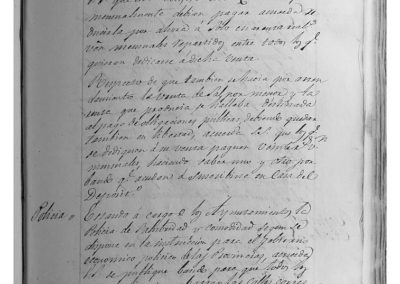 mensualmente debian pagar acuerda se
reduzca por ahora á solo
von mensuales repartidos entre todos los q.e
quieran dedicarse a dicha venta
Respecto de que tambien se hacia por arren
damiento la venta de Sal por menor, y la
renta que producia se hallaba destinada
al pago de obligaciones publicas debiendo quedar
tambien en libertad, acuerda la Jun
se dediquen á su venta paguen r.s v.n
mensuales haciendo saber uno y otro por
bando q.e acudan á suscribirse en Casa del
Deposit.o
Policia
Estando a cargo de los Ayuntamientos la
Policia de Salubridad y comodidad segun se
dispone en la instruccion para el Gobierno
economico politico de las Provincias, acuerda
se publique bando para que todos los
las calles